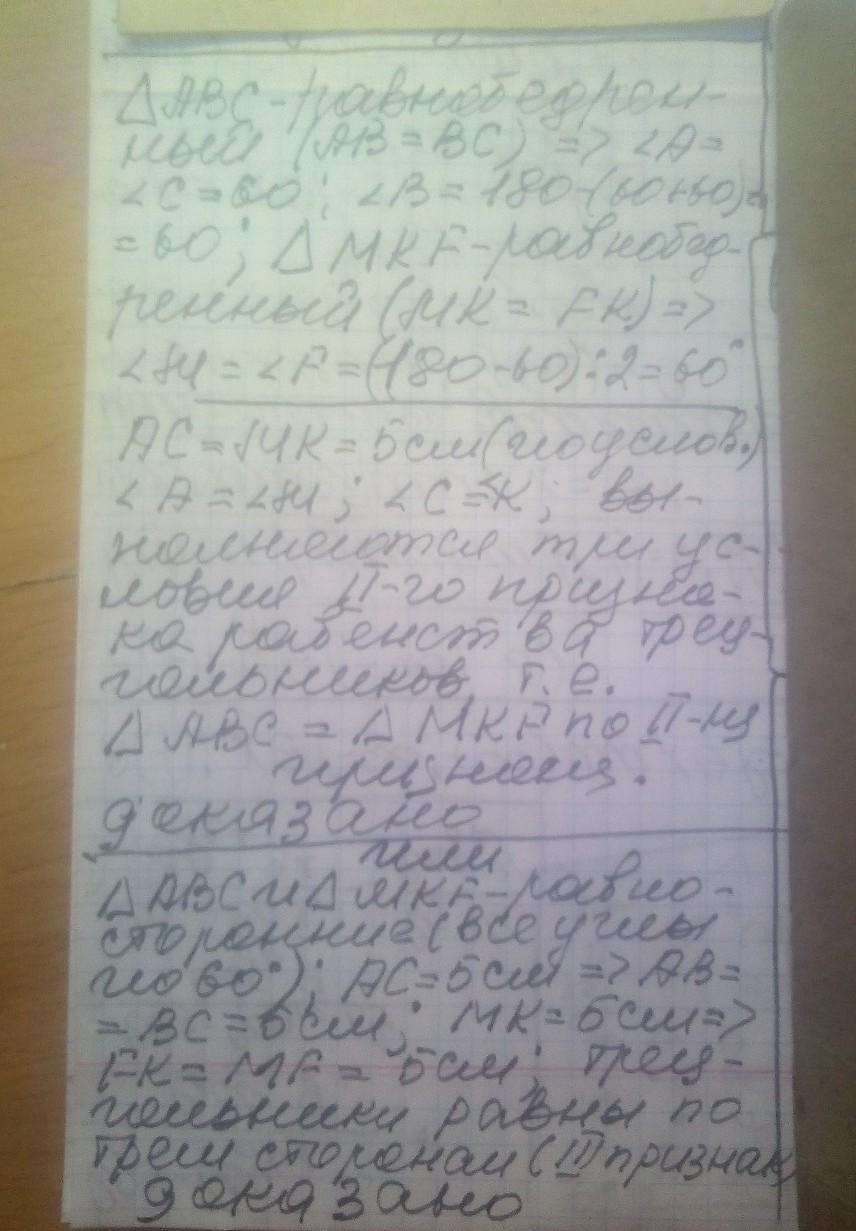 △ABC-равнобедрен-
ный (AB=BC) => ∠A=
∠C=60; ∠B=180-(60+60)=
=60; △MKF-равнобед-
ренный (MK=FK)=>
∠M=∠F=(180-60):2=60°
AC=MK=5см(по услов.)
∠A=∠M; ∠C=∠K; вы-
полняются три ус-
ловия II-го призна-
ка равенства треу-
гольников т.е.
△ABC=△MKF по II-му
признаку.
доказано
или
△ABC и △MKF-равно-
сторонние (все углы
по 60°); AC=5см => AB=
=BC=5см; MK=5см=>
FK=MF=5см; треу-
гольники равны по
трем сторонам (III признак)
доказано